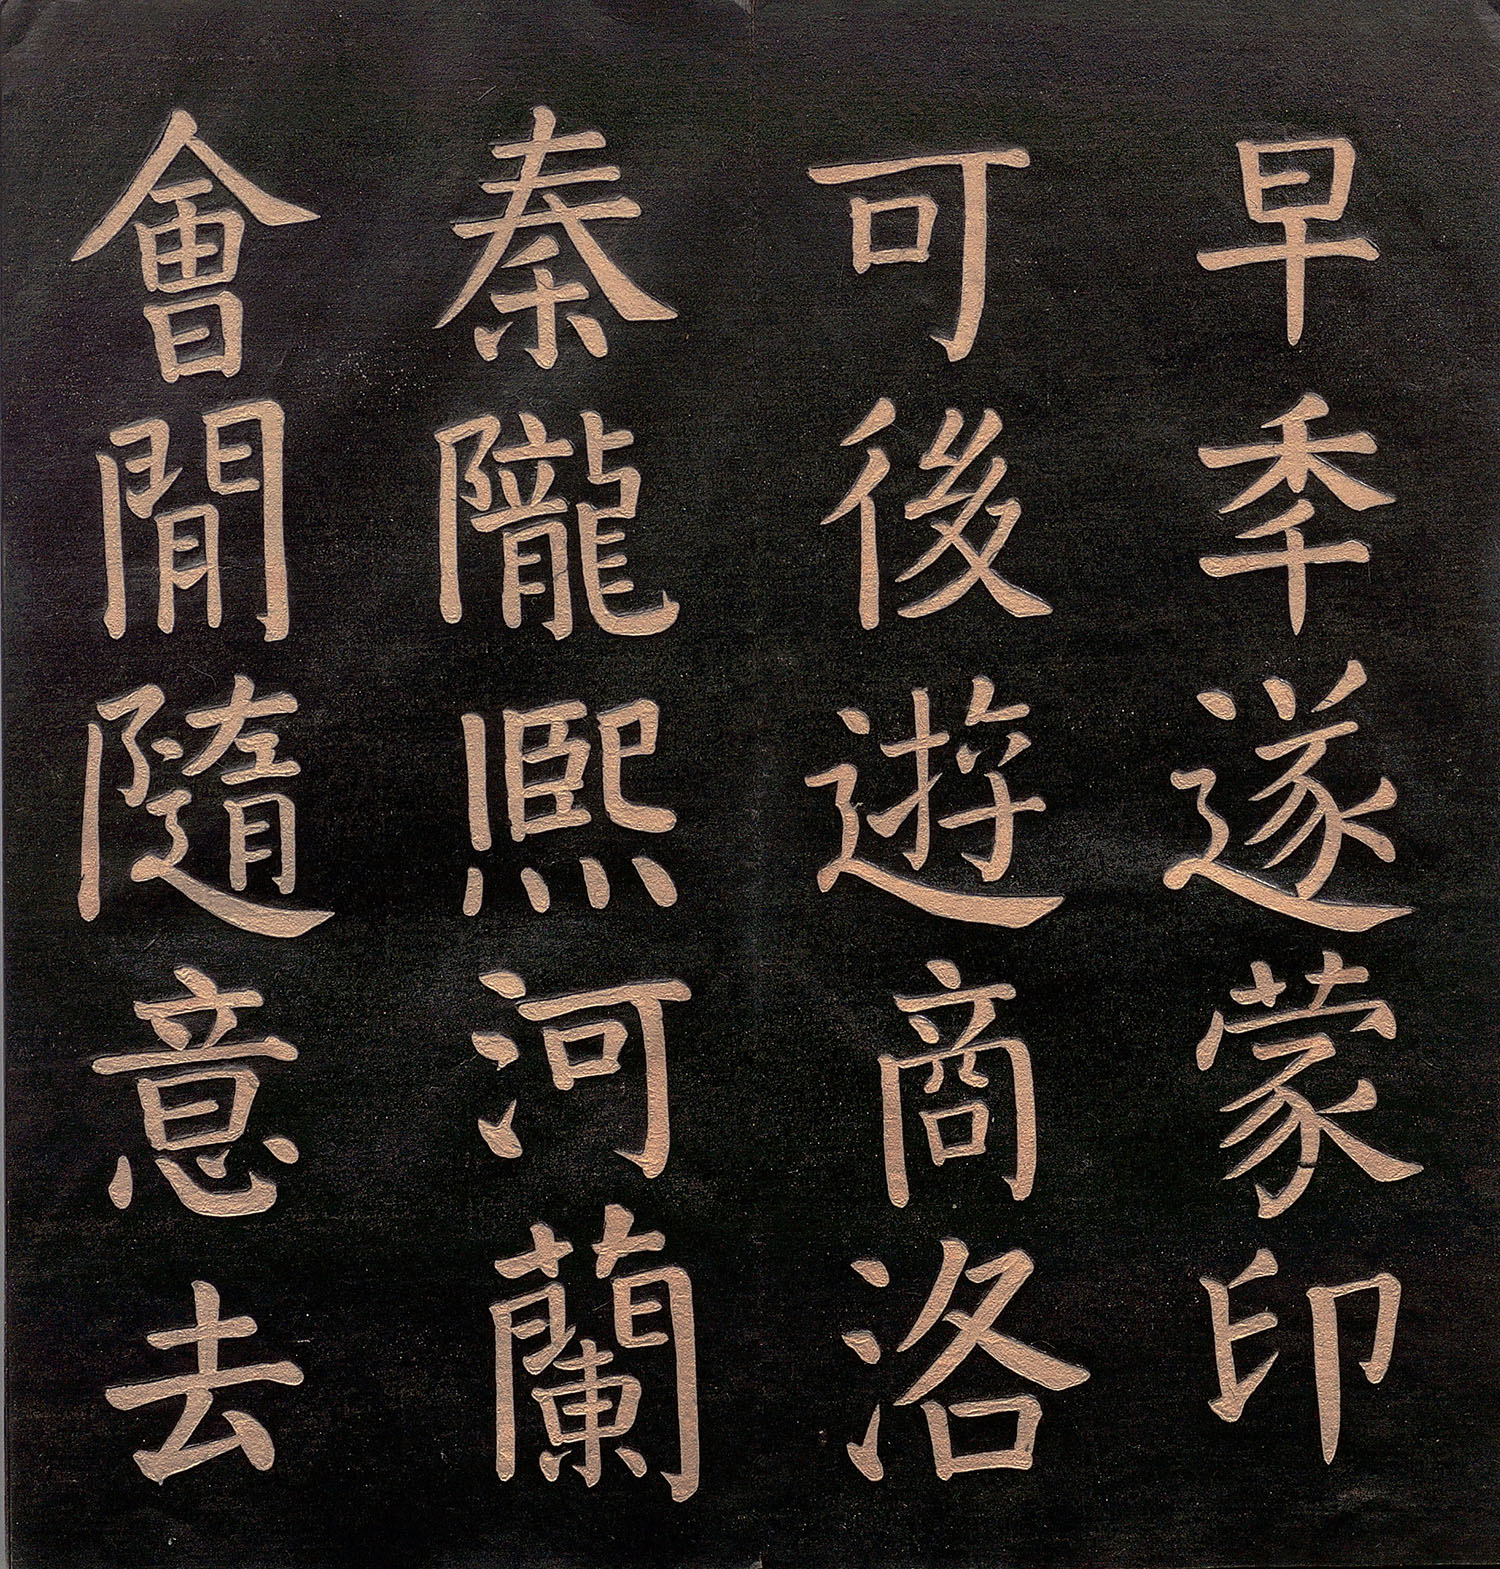 早秊遂蒙印
可後遊商洛
秦隴熈河蘭
會閒隨意去